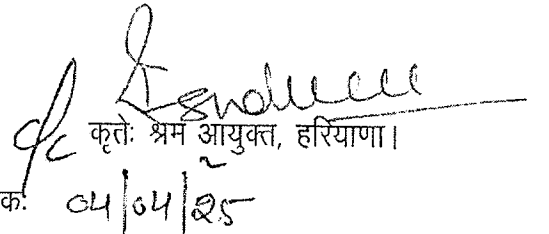 कृतेः श्रम आयुक्त, हरियाणा।
कः 04/04/25